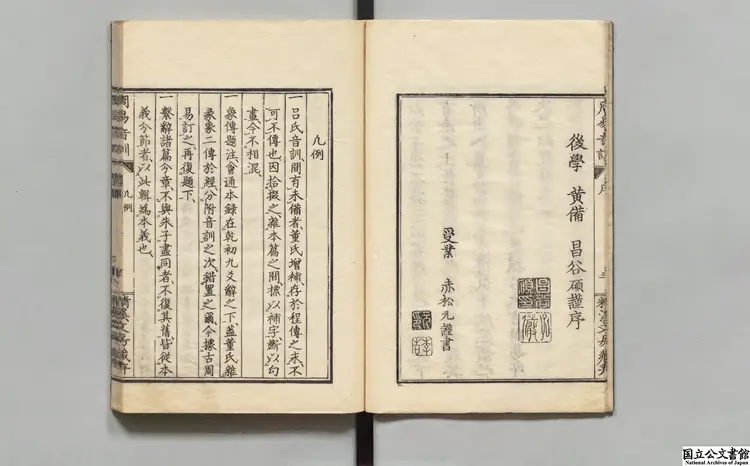 後學 黄備 昌谷碩謹序
受業 赤松元謹書
凡例
一呂氏音訓間有未備者董氏增補存於程傳之末不
可不傳也因拾掇之雜本篇之間標以補字斷以句
畫令不相混
一彖傳題注會通本録在乾初九爻辭之下蓋董氏離
彖象二傳於經分附音訓之次錯置之爾今據古周
易訂之再復題下
一繫辭諸篇分章不與朱子盡同者不復其舊皆從本
義分節者以其輯為本義也
周易音訓 凡例
国立公文書館
National Archives of Japan